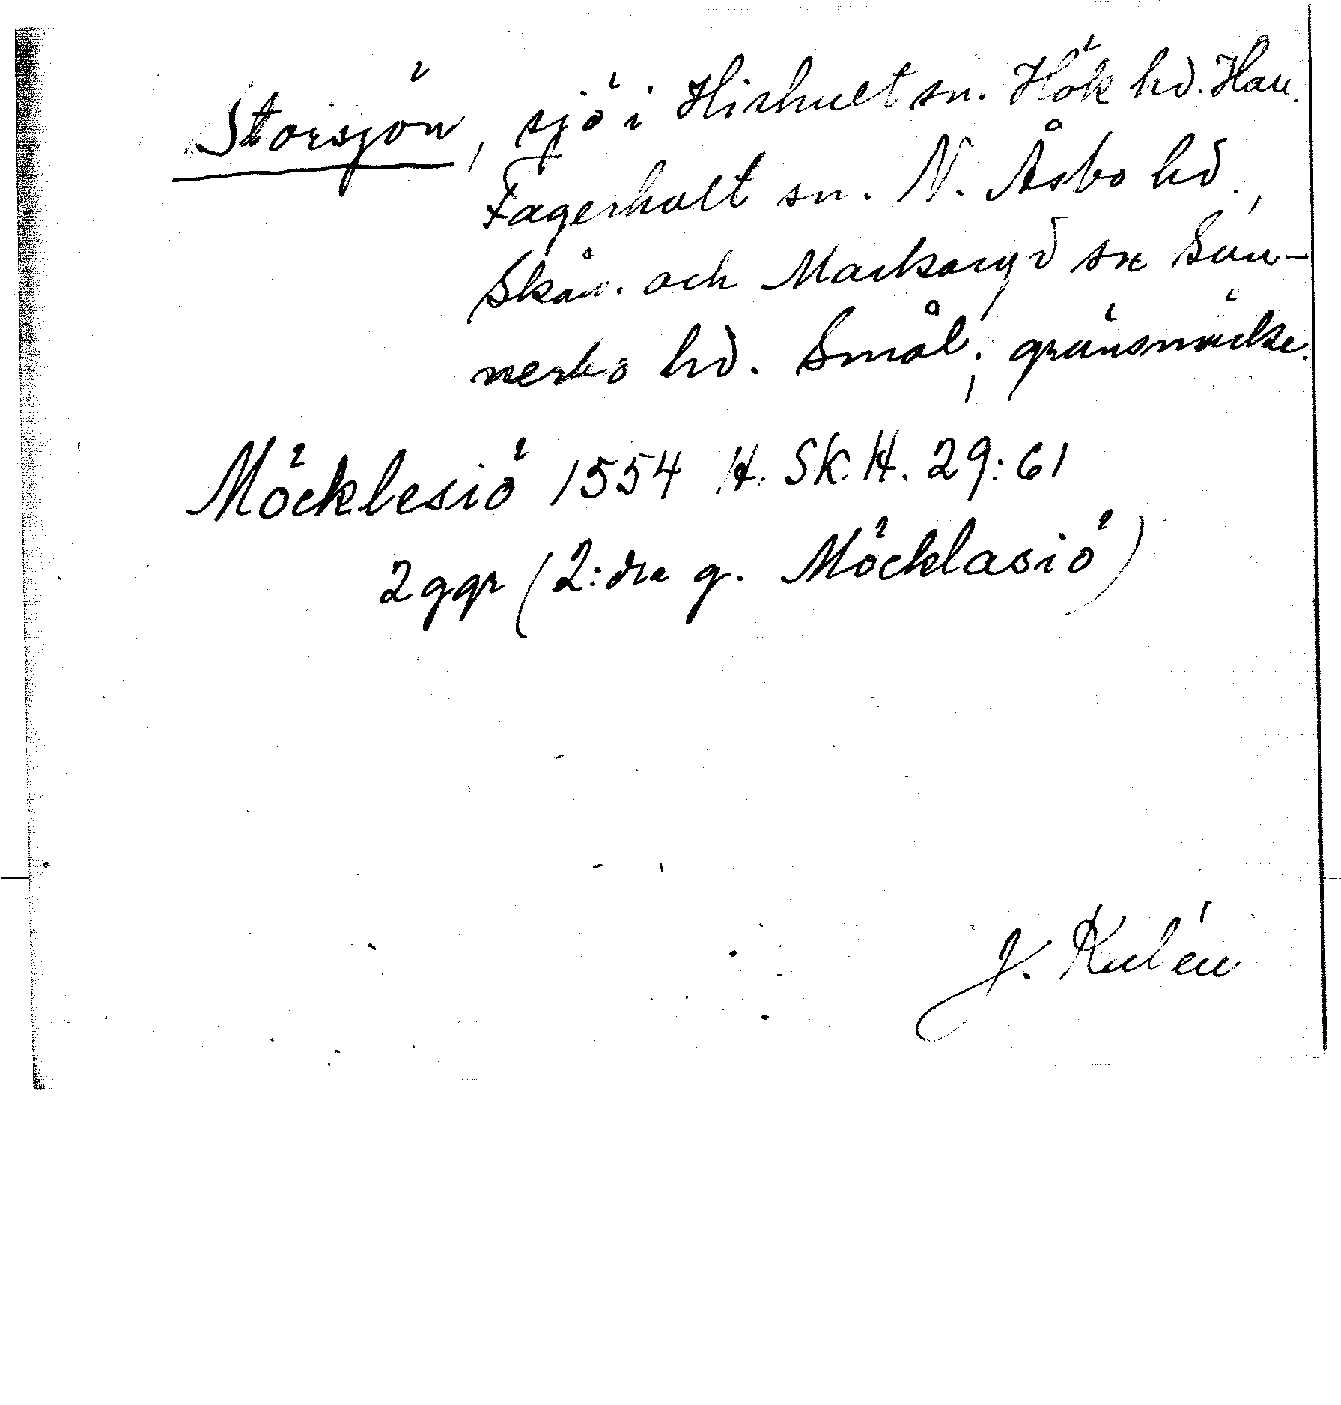 Storsjön, sjö i Hishult sn. Hök hd. Hall.
Fagerhult sn. N. Åsbo hd.,
Skån. och Markaryd sn Sun-
nerbo hd. Smål.; gränsmärke.
Möcklesiö 1554 H. SK. H. 29:61
2 ggr (2:dra g. Möcklasiö)
J. Kalén